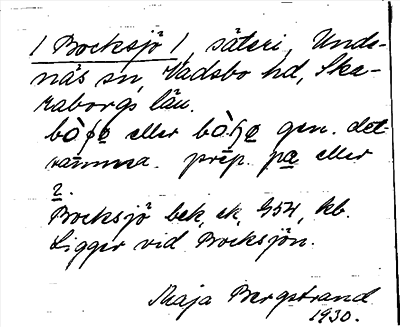 / Bocksjö /, säteri, Unde-
näs sn, Vadsbo hd, Ska-
raborgs län.
eller gen. det-
samma. prep. pɑ eller
Bocksjö bek, ek, G54, kb.
Ligger vid Bocksjön.
Maja Bergstrand
1930.